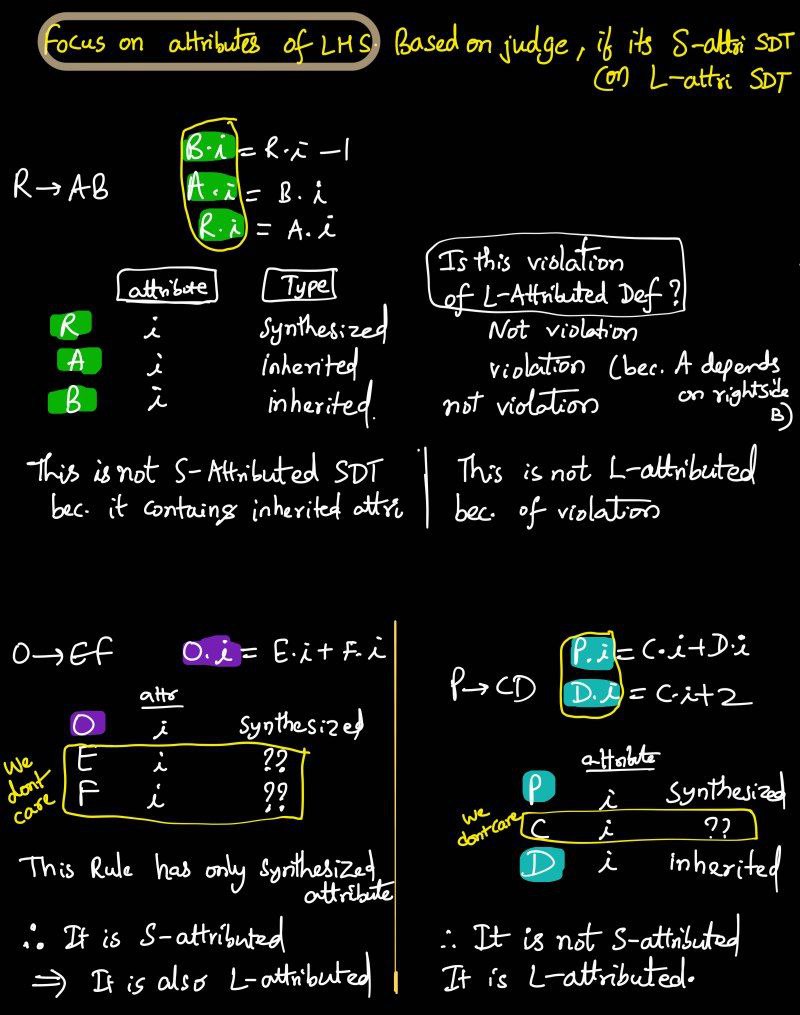 Focus on attributes of LHS. Based on judge, if its S-attri SDT
(or) L-attri SDT
R→AB
B.i = R.i -1
A.i = B.i
R.i = A.i
attribute Type Is this violation
of L-Attributed Def?
R i Synthesized Not violation
A i inherited violation (bec. A depends
on rightside
B)
B i inherited. not violation
This is not S-Attributed SDT
bec. it contains inherited attri
This is not L-attributed
bec. of violation
O→EF O.i = E.i + F.i
attr
O i Synthesized
E i ??
F i ??
We
dont
care
This Rule has only synthesized
attribute
∴ It is S-attributed
⇒ It is also L-attributed
P→CD
P.i = C.i+D.i
D.i = C.i+2
attribute
P i Synthesized
We
dont care
C i ??
D i inherited
∴ It is not S-attributed
It is L-attributed.